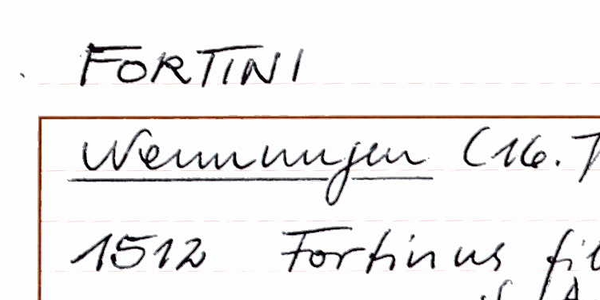 FORTINI
Nennungen (16. J
1512 Fortinus fil